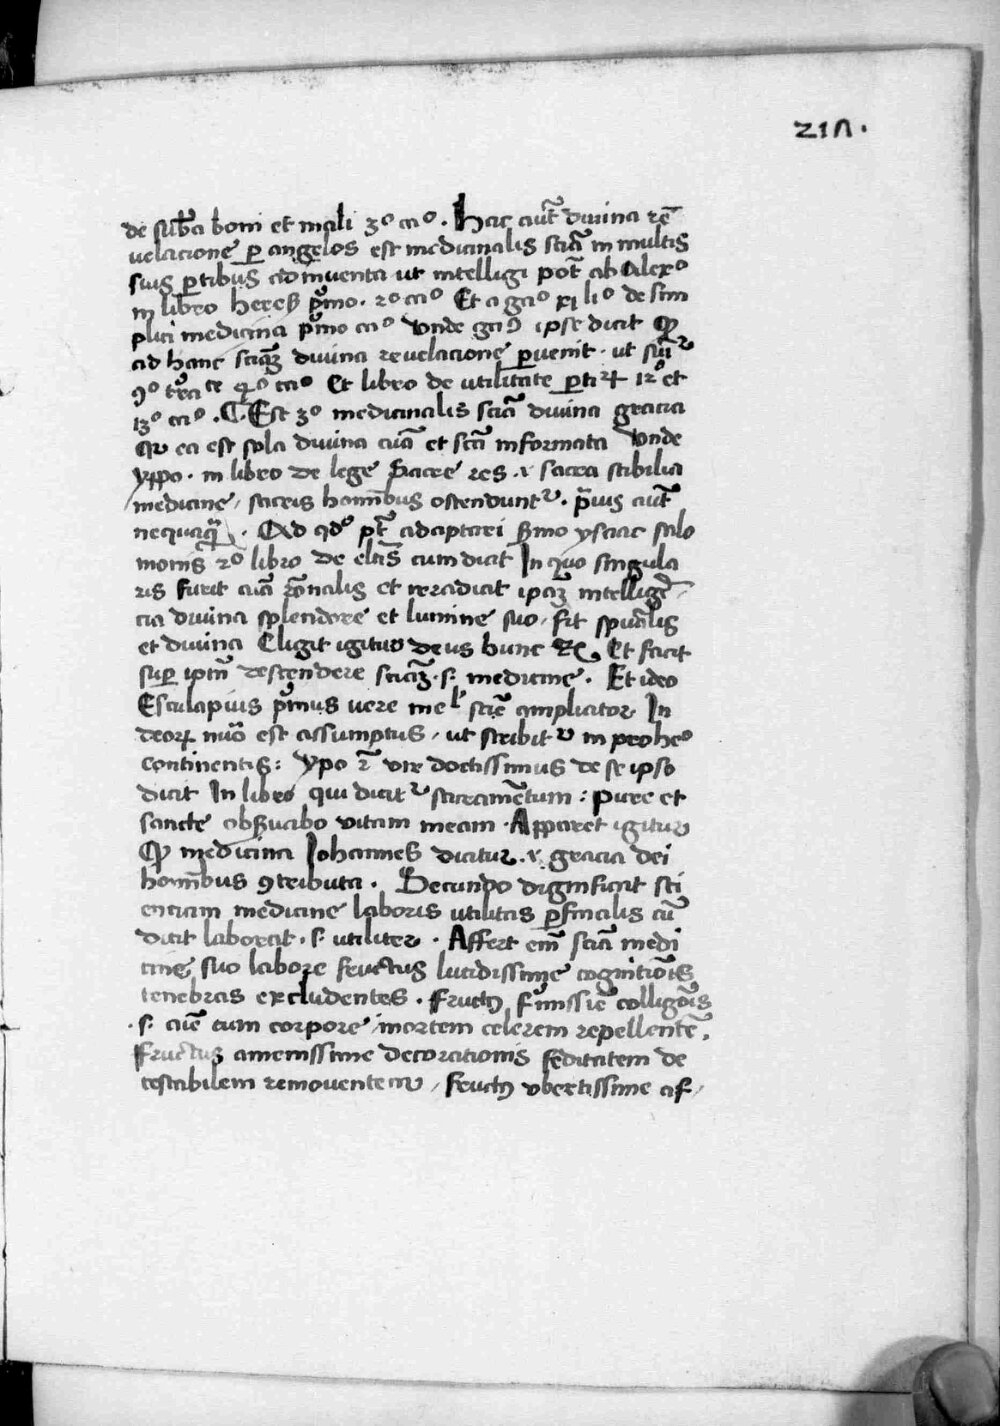 217.
de sub̄a boni et mali 3º caº. Hac aut̄ diuina re
uelacione per angelos est medicinalis sciā in multis
suis partibus adinventa ut intelligi pot̄ ab Alexº
in libro pºmo. 2º caº Et a gaº xi liº de sim
plici medicina pºmo caº Unde gaꝰ ipse dicit ꝙ
ad hanc sciaꝫ diuina reuelacione peruenit. ut
caº Et libro de utilitate partiꝝ 12º et
13º caº. ¶ Est 3º medicinalis sciā diuina gracia
ea est sola diuina cuā et scā informata Unde
yppo. in libro de lege Sacre res. sacra stabilia
medicine, sacris hom̄ibus ostendunt᷑. aut̄
nequaꝗ̄. Ad qdº pt̄ adaptari s̄mo ysaac salo
monis 2º libro de elt̄is cum dicat In quo singula
ris fuit aīa rōnalis et irradiat ipaꝫ intellige
cia diuina splendore et lumine suo, fit sp̄ualis
et diuina Eligit igitur deus hunc Et facit
super ip̄m descendere sciaꝫ. s. medicine. Et ideo
Esculapius primus vere me sciē amplicator In
deoꝝ nūo est assumptus, ut scribit᷑ in proheº
continentis: Ypo vir doctissimus de se ipso
dicit In libro qui dicit᷑ sacramētum: Pure et
sancte obẜuabo vitam meam. Apparet igitur
ꝙ medicina Johannes dicatur. gracia dei
hom̄bus ꝯtributa. Secundo dignificat sci
entiam medicine laboris utilitas p̱finalis cū
dicit laborat. s. utiliter. Affert em̄ sciā medi
cine suo labore fructus lucidissime cognitiōis
tenebras excludentes. Fructꝰ colligōis
.s. aīe cum corpore, mortem celerem repellentē.
Fructus amenissime decorationis feditatem de
testabilem removentem, fructꝰ vbertissime af,